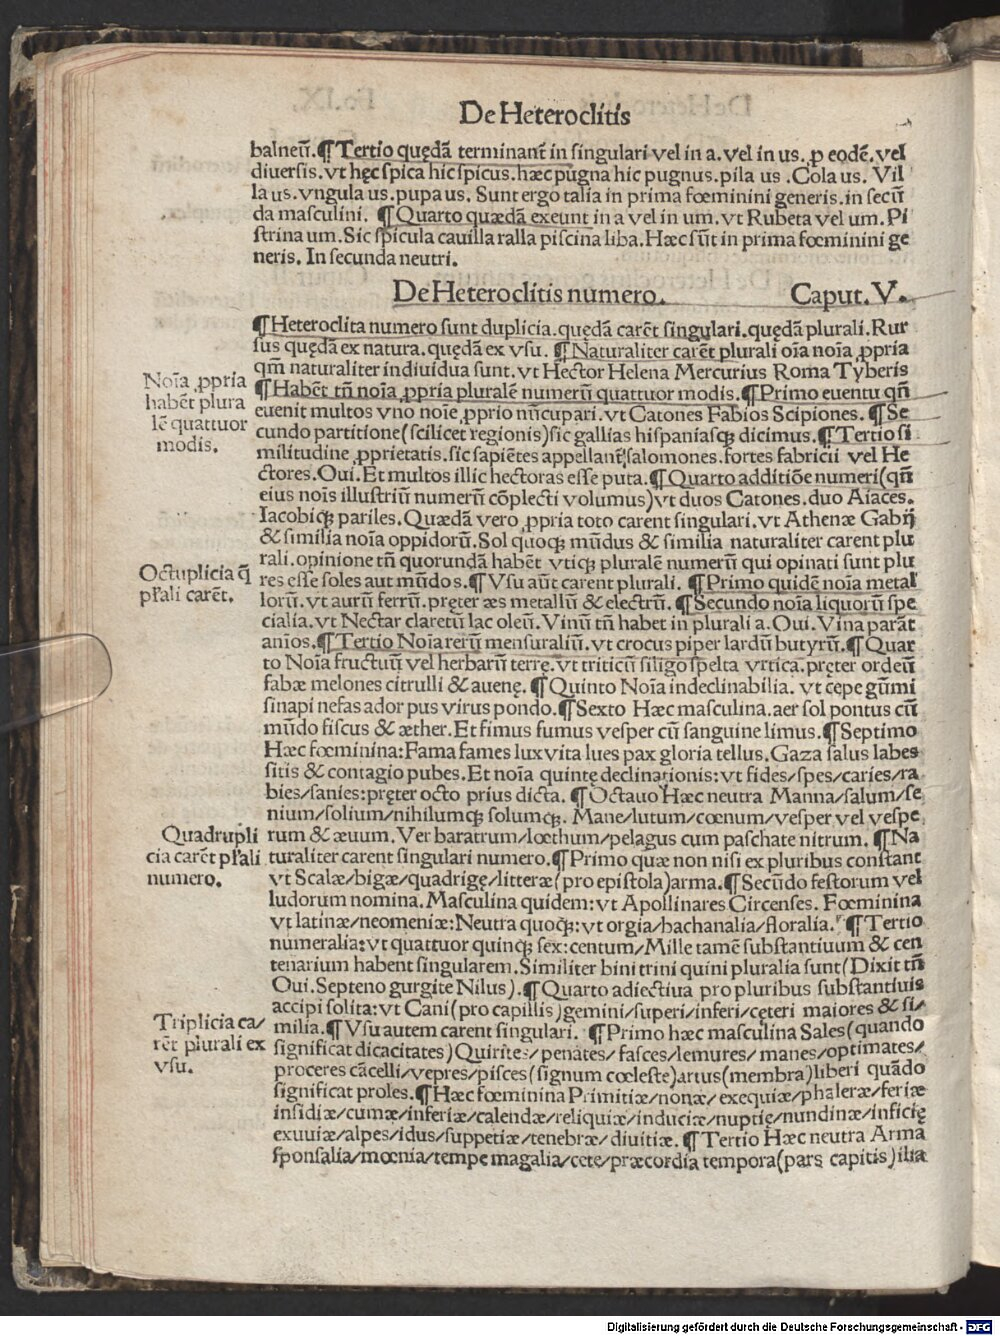 De Heteroclitis
balneũ.¶Tertio quędã terminant̃ in singulari vel in a. vel in us. ꝓ eodẽ. vel
diuersis. vt hęc spica hic spicus. hæc pugna hic pugnus. pila us .Cola us. Vil
la us. vngula us. pupa us. Sunt ergo talia in prima fœminini generis. in secũ
da masculini. ¶Quarto quædã exeunt in a vel in um. vt Rubeta vel um. Pi
strina um. Sic spicula cauilla ralla piscina liba. Hæc sũt in prima fœminini ge
neris. In secunda neutri.
De Heteroclitis numero. Caput. V.
¶Heteroclita numero sunt duplicia. quędã carẽt singulari. quędã plurali. Rur
sus quędã ex natura. quędã ex vsu. ¶Naturaliter carẽt plurali oĩa noĩa ꝓpria
qm̃ naturaliter indiuidua sunt. vt Hector Helena Mercurius Roma Tyberis
¶Habẽt tñ noĩa ꝓpria pluralẽ numerũ quattuor modis. ¶Primo euentu qñ
euenit multos vno noĩe ꝓprio nũcupari. vt Catones Fabios Scipiones. ¶Se
cundo partitione(scilicet regionis)sic gallias hispaniasqꝫ dicimus. ¶Tertio si
militudine ꝓprietatis. sic sapiẽtes appellant̃ salomones. fortes fabricii vel He
ctores. Oui. Et multos illic hectoras esse puta. ¶Quarto additiõe numeri(qñ
eius noĩs illustriũ numerũ cõplecti volumus)vt duos Catones. duo Aiaces.
Iacobiqꝫ pariles. Quædã vero ꝓpria toto carent singulari. vt Athenæ Gabij
& similia noĩa oppidorũ. Sol quoqꝫ mũdus & similia naturaliter carent plu
rali. opinione tñ quorundã habẽt vtiqꝫ pluralẽ numerũ qui opinati sunt plu
res esse soles aut mũdos. ¶Vsu aũt carent plurali. ¶Primo quidẽ noĩa metal
lorũ. vt aurũ ferrũ. pręter æs metallũ & electrũ. ¶Secundo noĩa liquorũ spe
cialia. vt Nectar claretũ lac oleũ. Vinũ tñ habet in plurali a. Oui. Vina parãt
anĩos. ¶Tertio Noĩa rerũ mensuraliũ. vt crocus piper lardũ butyrũ. ¶Quar
to Noĩa fructuũ vel herbarũ terrę. vt triticũ siligo spelta vrtica. pręter ordeũ
fabæ melones citrulli & auenę. ¶Quinto Noĩa indeclinabilia. vt cepe gũmi
sinapi nefas ador pus virus pondo. ¶Sexto Hæc masculina. aer sol pontus cũ
mũdo fiscus & æther. Et fimus fumus vesper cũ sanguine limus. ¶Septimo
Hæc fœminina: Fama fames lux vita lues pax gloria tellus. Gaza salus labes
sitis & contagio pubes. Et noĩa quintę declinationis: vt fides/spes/caries/ra
bies/sanies: pręter octo prius dicta. ¶Octauo Hæc neutra Manna/salum/se
nium/solium/nihilumqꝫ solumqꝫ. Mane/lutum/cœnum/vesper vel vespe
rum & æuum. Ver baratrum/lœthum/pelagus cum paschate nitrum. ¶Na
turaliter carent singulari numero. ¶Primo quæ non nisi ex pluribus constant
vt Scalæ/bigæ/quadrigę/litteræ(pro epistola)arma. ¶Secũdo festorum vel
ludorum nomina. Masculina quidem: vt Apollinares Circenses. Fœminina
vt latinæ/neomeniæ: Neutra quoqꝫ: vt orgia/bachanalia/floralia. ¶Tertio
numeralia: vt quattuor quinqꝫ sex: centum/Mille tamẽ substantiuum & cen
tenarium habent singularem. Similiter bini trini quini pluralia sunt(Dixit tñ
Oui. Septeno gurgite Nilus). ¶Quarto adiectiua pro pluribus substantiuis
accipi solita: vt Cani(pro capillis)gemini/superi/inferi/cęteri maiores & si/
milia. ¶Vsu autem carent singulari. ¶Primo hæc masculina Sales(quando
significat dicacitates)Quirites/penates/fasces/lemures/manes/optimates/
proceres cãcelli/vepres/pisces(signum cœleste)artus(membra)liberi quãdo
significat proles. ¶Hæc fœminina Primitiæ/nonæ/exequiæ/phaleræ/feriæ
insidiæ/cumæ/inferiæ/calendæ/reliquiæ/induciæ/nuptię/nundinæ/inficię
exuuiæ/alpes/idus/suppetiæ/tenebræ/diuitiæ. ¶Tertio Hæc neutra Arma
sponsalia/mœnia/tempe magalia/cete/præcordia tempora(pars capitis)ilia
Noĩa ꝓpria
habẽt plura
lẽ quattuor
modis.
Octuplicia q̃
pľali carẽt.
Quadrupli
cia carẽt pľali
numero.
Triplicia ca/
rẽt plurali ex
vsu.
Digitalisierung gefördert durch die Deutsche Forschungsgemeinschaft - DFG